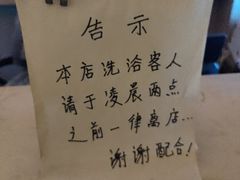 告示
本店洗浴客人
请于凌晨两点
之前一律离店...
谢谢配合!